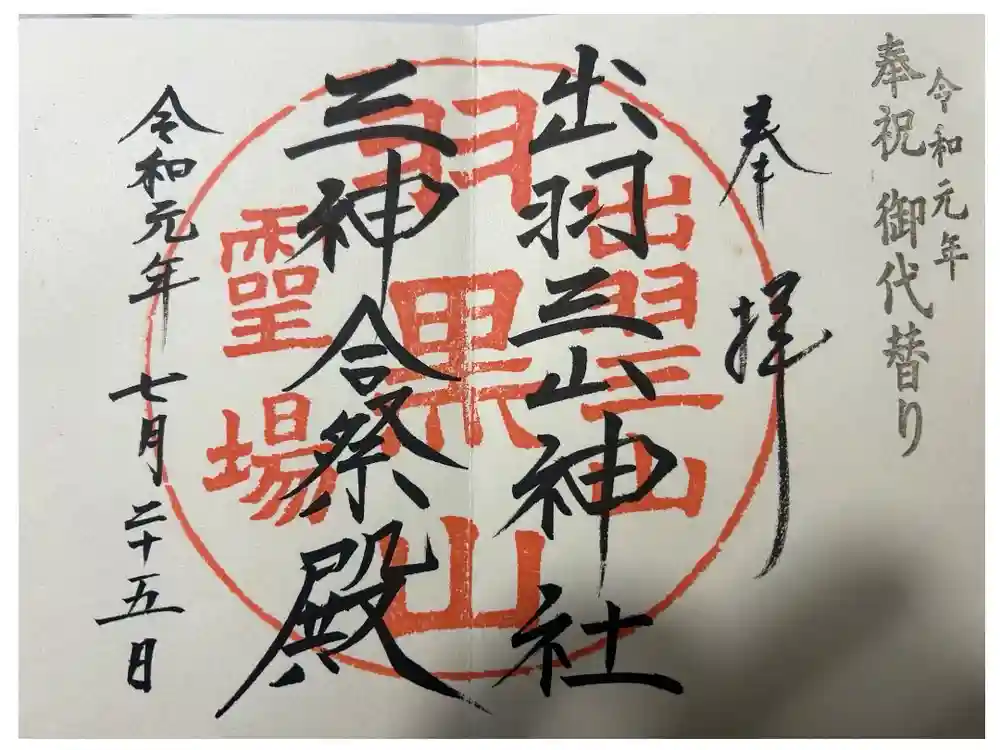 令和元年
奉祝 御代替り
奉拝
出羽三山神社
三神合祭殿
令和元年 七月二十五日
出羽三山
羽黒山
霊場